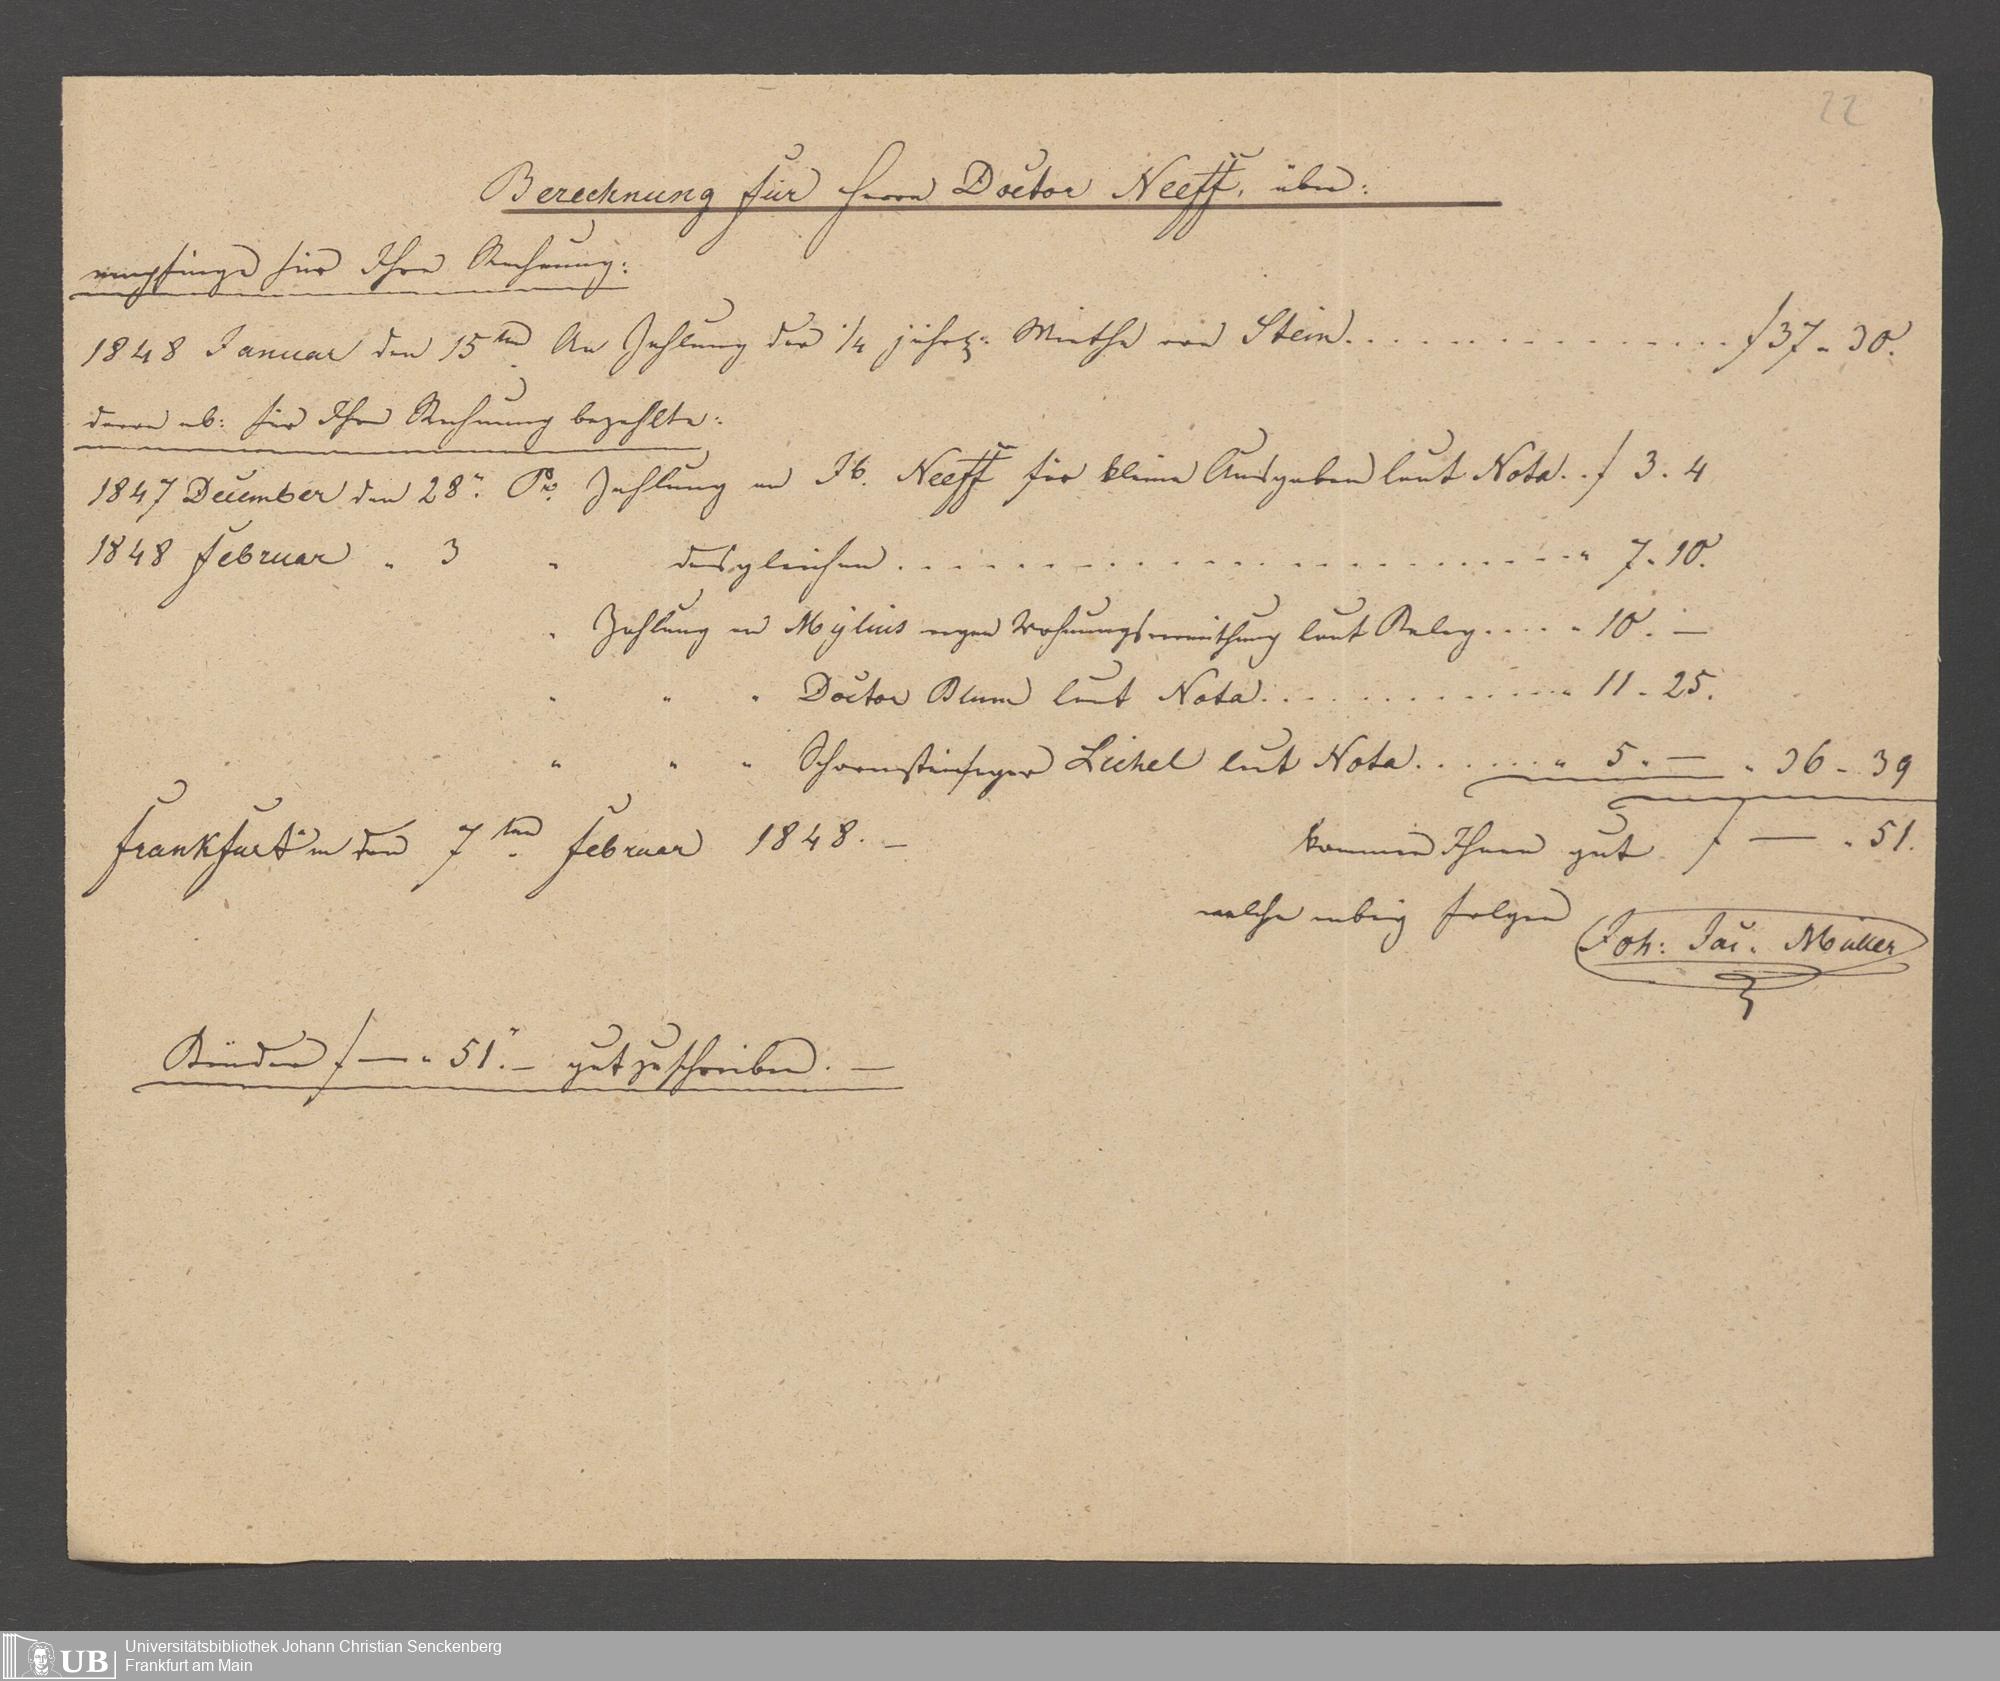 22
Berechnung für Herrn Doctor Neeff, über:
empfinge für Ihre Rechnung:
1848 Januar den 15ten An Zahlung der 1/4 jährl: Miethe von Stein . . . . . . . . . . . . . . . f 37 " 30.
davon ab: für Ihre Rechnung bezahlte:
1847 December den 28". Pr. Zahlung an Jb. Neeff für kleine Ausgaben laut Nota . . f 3 . 4
1848 Februar " 3 " desgleichen . . . . . . . . . . . . . . . . . . . . . . " 7 " 10.
" Zahlung an Mylius wegen Wohnungsvermiethung laut Beleg . . . . " 10 . —
" " " Doctor Blum laut Nota . . . . . . . . . . . . " 11 " 25.
" " " Schornsteinfeger Lickel laut Nota . . . . . . " 5 " — " 36 " 39
Frankfurt a/m den 7ten Februar 1848. — kommen Ihnen gut f — " 51.
welche anbey folgen
Joh: Jac. Müller
f — " 51". — gutzuschreiben. —
UB
Universitätsbibliothek Johann Christian Senckenberg
Frankfurt am Main